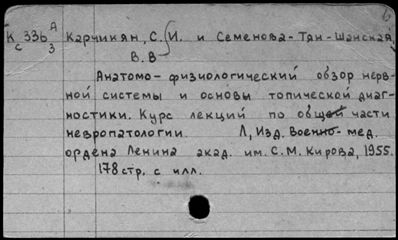 6
К 336 А/3 Карчикян, С. И. и Семенова-Тян-Шанская,
с В. В
Анатомо-физиологический обзор нерв-
ной системы и основы топической диаг-
ностики. Курс лекций по общей части
невропатологии. Л, Изд. Военно-мед.
ордена Ленина акад. им. С. М. Кирова, 1955.
178 стр. с илл.